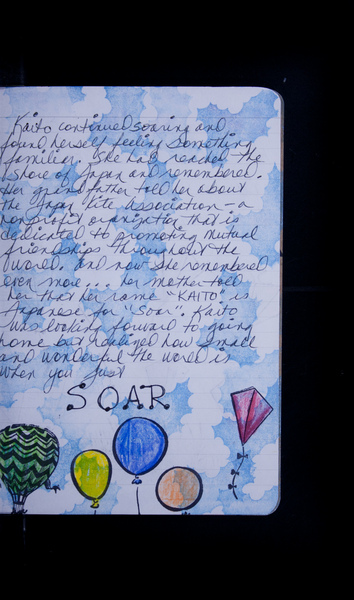 Kaito continued soaring and
found herself feeling something
familiar. She had reached the
shore of Japan and remembered.
Her grandfather told her about
the Japan Kite Association - a
nonprofit organization that is
dedicated to promoting mutual
friendships throughout the
world. And now she remembered
even more... her mother told
her that her name "KAITO" is
Japanese for "soar". Kaito
was looking forward to going
home but realized how small
and wonderful the world is
when you just
SOAR